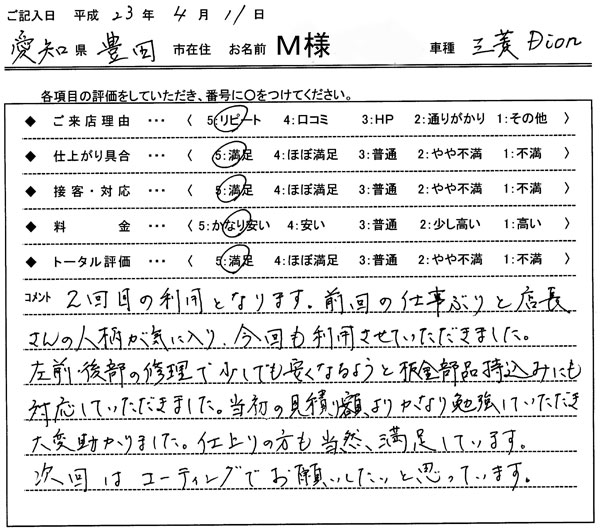 ご記入日 平成 23 年 4 月 11 日
愛知 県 豊田 市在住 お名前 M様 車種 三菱 Dion
各項目の評価をしていただき、番号に〇をつけてください。
◆ ご来店理由 ･･･ 〈 5:リピート 4:口コミ 3:HP 2:通りがかり 1:その他 〉
◆ 仕上がり具合 ･･･ 〈 5:満足 4:ほぼ満足 3:普通 2:やや不満 1:不満 〉
◆ 接客・対応 ･･･ 〈 5:満足 4:ほぼ満足 3:普通 2:やや不満 1:不満 〉
◆ 料金 ･･･ 〈 5:かなり安い 4:安い 3:普通 2:少し高い 1:高い 〉
◆ トータル評価 ･･･ 〈 5:満足 4:ほぼ満足 3:普通 2:やや不満 1:不満 〉
コメント 2回目の利用となります。前回の仕事ぶりと店長
さんの人柄が気に入り、今回も利用させていただきました。
左前・後部の修理で少しでも安くなるようと板金部品持込みにも
対応していただきました。当初の見積り額よりかなり勉強していただき
大変助かりました。仕上りの方も当然、満足しています。
次回はコーティングでお願いしたいと思っています。